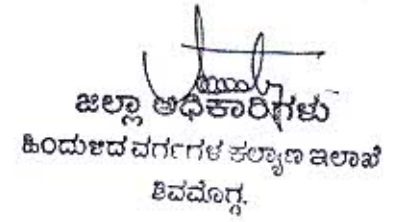 ಜಿಲ್ಲಾ ಅಧಿಕಾರಿಗಳು
ಹಿಂದುಳಿದ ವರ್ಗಗಳ ಕಲ್ಯಾಣ ಇಲಾಖೆ
ಶಿವಮೊಗ್ಗ.